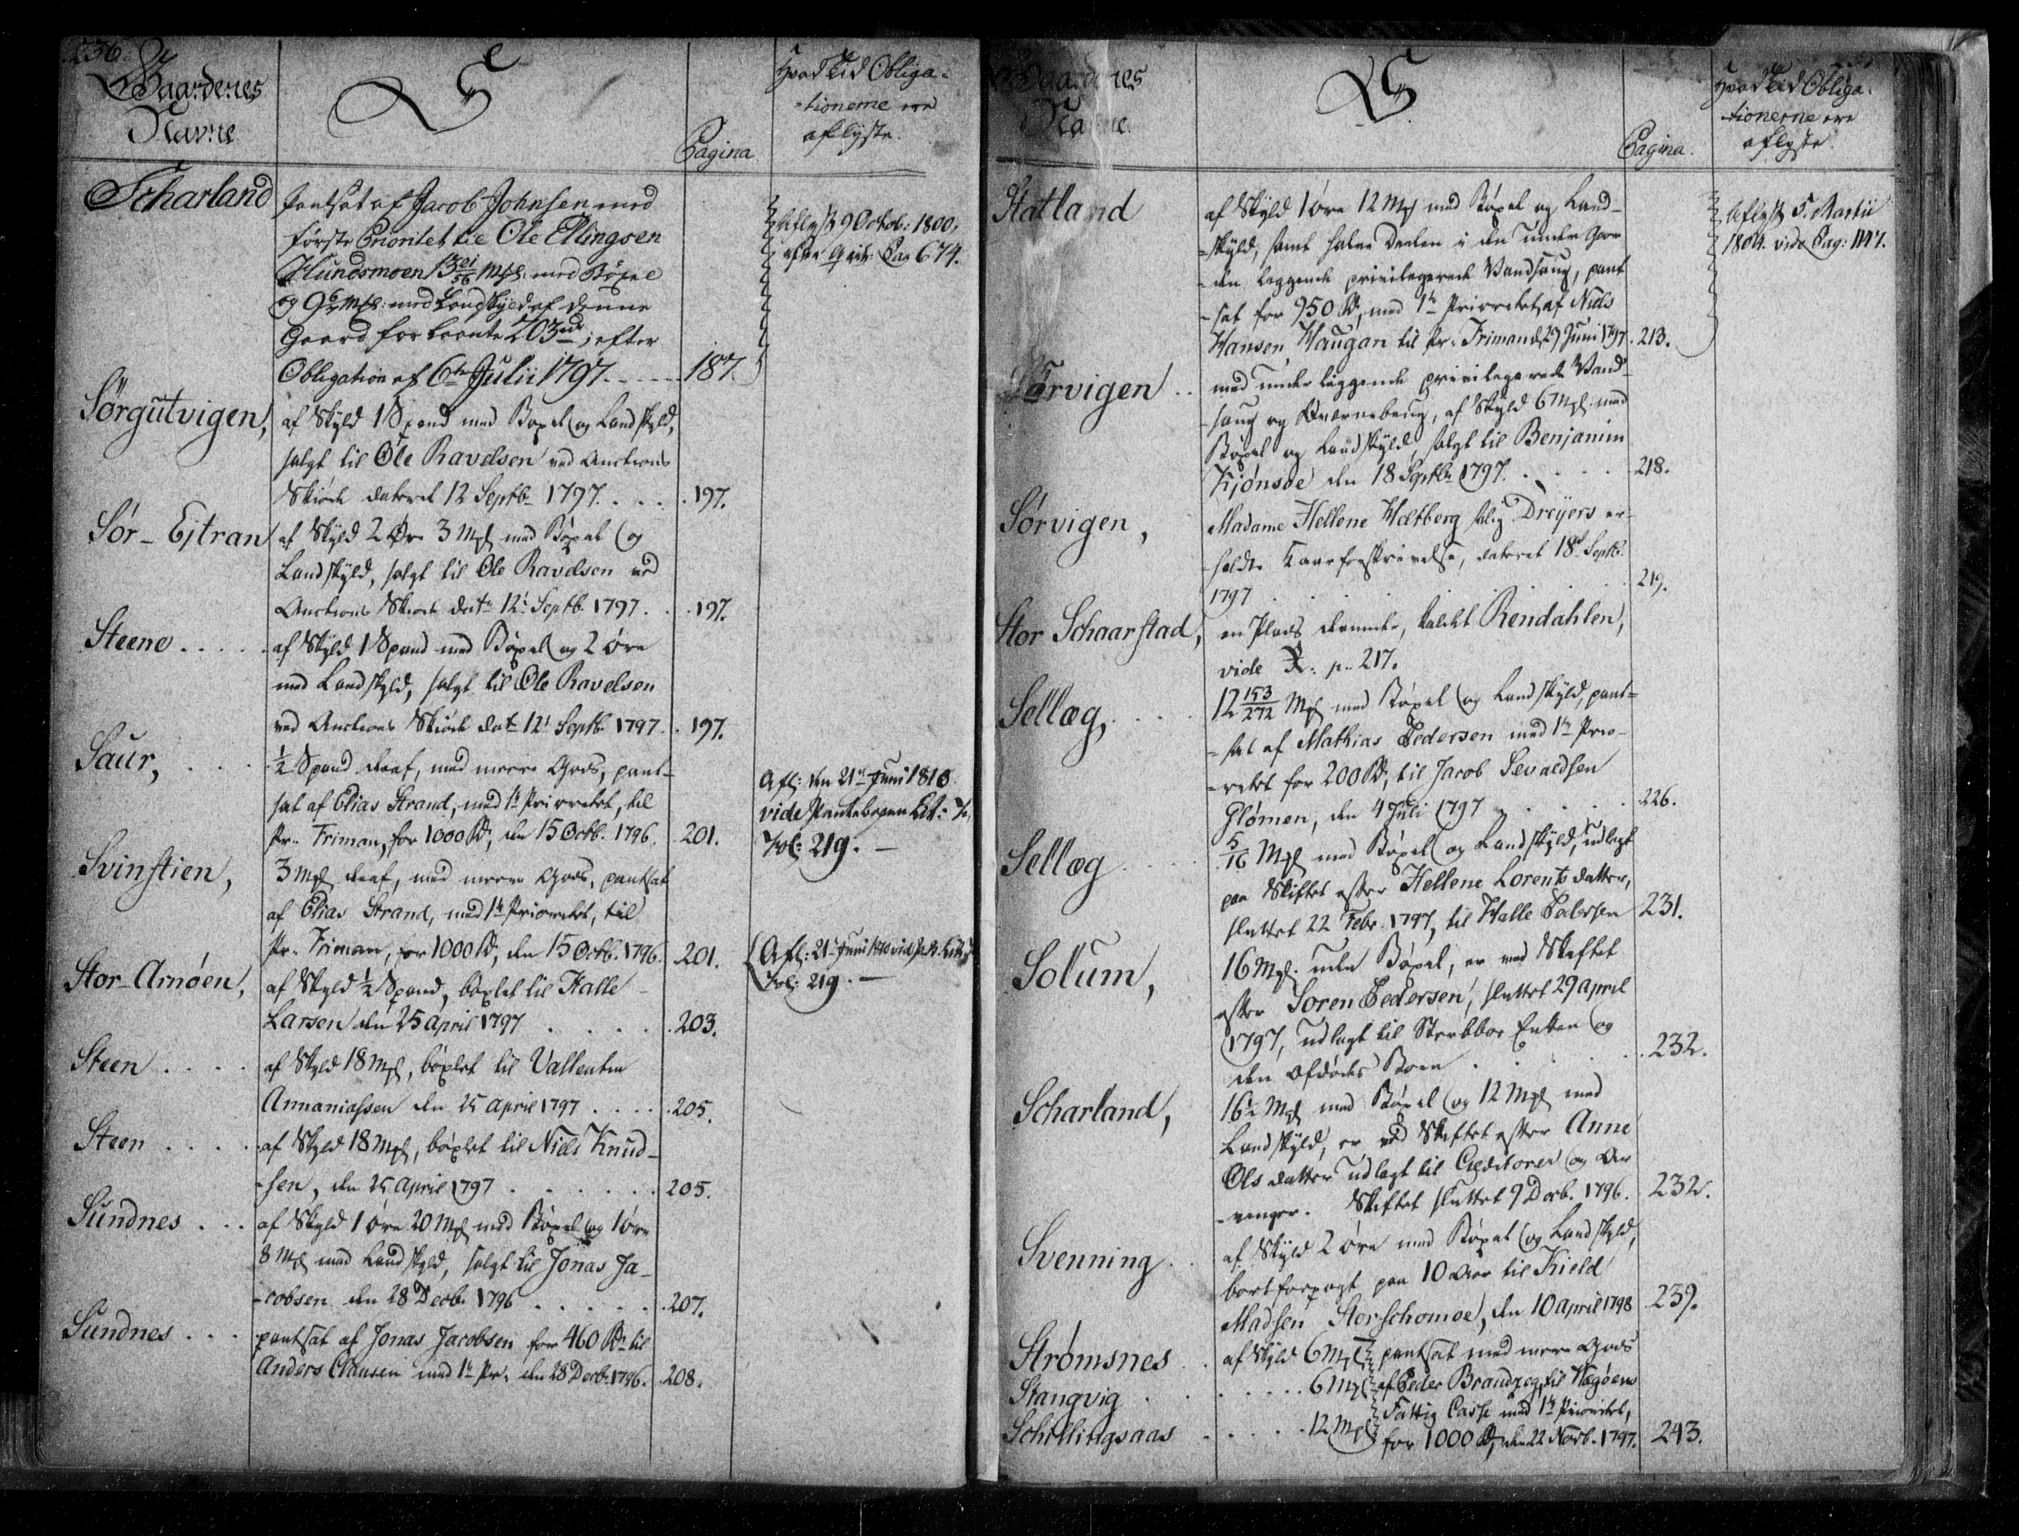 236.
Gaardenes
Navne
S
Pagina
Hvad Tid Obliga-
-tionerne ere
aflyste.
Scharland
pantsat af Jacob Johnsen med
første Prioritet til Ole Ellingsen
Hundsmoen 13 21/56 Mpl: med Bøxel
og 9 6/7 Mpl: med Landskyld af denne
Gaard for laante 703 rdr; efter
Obligation af 6te Julii 1797. 187.
Aflyst 9 Octob: 1800,
Pag 674.
Sørgutvigen,
af Skyld 1 Spand med Bøxel og Landskyld,
solgt til Ole Ravelsen ved Auctions
Skiøde dateret 12 Septb. 1797. . . . 197.
Sør-Ejtran
af Skyld 2 Øre 3 Mpl med Bøxel og
Landskyld, solgt til Ole Ravelsen ved
Auctions Skiøde dat. 12 Septb. 1797. . . 197.
Steene . . . . .
af Skyld 1 Spand med Bøxel og 2 øre
med Landskyld, solgt til Ole Ravelsen
ved Auctions Skiøde dat. 12 Septb. 1797. . 197.
Saur, . . .
½ Spand deraf, med meere Gods, pant-
sat af Elias Strand, med 1te Prioritet, til
Pr. Friman, for 1000 Rd, den 15 Octb. 1796. 201.
Afl: den 21de Juni 1810
vide Pantebogen Lit:
Fol: 219. —
Svinstien,
3 Mpl deraf, med meere Gods, pantsat
af Elias Strand, med 1te Prioritet, til
Pr. Friman, for 1000 Rd, den 15 Octb. 1796. 201.
Afl: 21 Juni 1810 vide P. B. Lit:
Fol: 219. —
Stor-Arnøen,
af Skyld ½ Spand, bøxlet til Halle
Larsen den 25 april 1797 . . . . 203.
Steen . . . .
af Skyld 18 Mpl, bøxlet til Vallentin
Annaniassen den 25 april 1797 . . . . 205.
Steen . . . .
af Skyld 18 Mpl, bøxlet til Niels Knud-
-sen, den 25 april 1797 . . . . . . 205.
Sundnes . . .
af Skyld 1 øre 20 Mpl med Bøxel og 1 øre
8 Mpl med Landskyld, solgt til Jonas Ja-
-cobsen den 28 Decb. 1796 . . . . . . 207.
Sundnes . . .
pantsat af Jonas Jacobsen for 460 Rd til
Anders Clausen med 1te Pr. den 28 Decb. 1796. 208.
Gaardenes
Navne
S
Pagina.
Hvad Tid Obliga-
-tionerne ere
aflyste.
Statland
af Skyld 1 øre 12 Mpl med Bøxel og Land-
-skyld, samt halve Deelen i den under Gaar-
-den liggende privilegerede Vandsaug, pant
-sat for 950 Rd, med 1te Prioritet af Niels
Hansen Haugan til Pr. Frimand, 29 Juni 1797. 213.
Aflyst 5. Martii
1804. vide Pag: 1147.
Sørvigen . .
med underliggende privilegerede Vand-
-saug og Qværnebrug, af Skyld 6 Mpl. med
Bøxel og Landskyld, solgt til Benjamin
Kjønsøe den 18 Septbr 1797. . . . . 218.
Sørvigen,
Madame Hellene Holtberg salig Dreyers er-
-holdte Kaarforskrivelse, dateret 18de Septb.
1797 . . . . . . . 219.
Stor Schaarstad,
en Plads derunder, kaldet Rendahlen,
vide R: p. 217.
Sellæg, . . . .
12 153/272 Mpl med Bøxel og Landskyld, pant-
-sat af Mathias Pedersen med 1te Prio-
-ritet for 200 Rd, til Jacob Sevaldsen
Glømen, den 4 Juli 1797 . . . . . 226.
Sellæg . . .
5/16 Mpl med Bøxel og Landskyld, udlagt
paa Skiftet efter Hellene Lorentsdatter,
sluttet 22 Febr. 1797, til Halle Pedersen 231.
Solum,
16 Mpl. uden Bøxel, er ved Skiftet
efter Søren Pedersen, sluttet 29 april
1797, udlagt til Sterbboe Enken og
den afdødes Børn . . . . 232.
Scharland,
16½ Mpl med Bøxel og 12 Mpl med
Landskyld, er ved Skiftet efter Anne
Olsdatter udlagt til Creditorer og Ar
-vinger. Skiftet sluttet 9 Decb. 1796. 232.
Svenning . .
af Skyld 2 øre med Bøxel og Landskyld,
bortforpagt paa 10 Aar til Kield
Madsen Storschomoe, den 10 april 1798 239.
Strømsnes .
af Skyld 6 Mpl pantsat med mere Gods
Stangvig . . . . . . . 6 Mpl af Peder Brandzeg til Vegøens
Schillingsaas . . . . . 12 Mpl Fattig Casse med 1te Prioritet,
for 1000 Rd, den 22 Novb. 1797. 243.